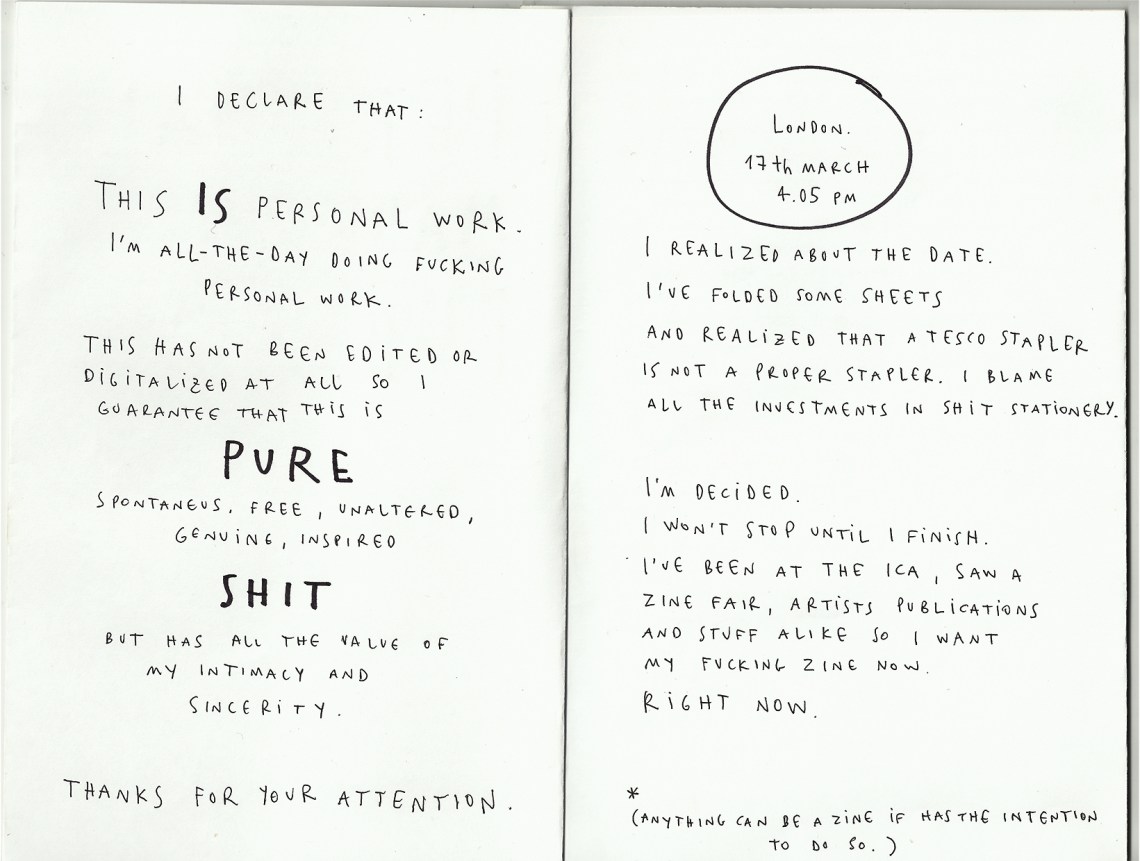 I DECLARE THAT:
THIS IS PERSONAL WORK.
I'M ALL-THE-DAY DOING FUCKING
PERSONAL WORK.
THIS HAS NOT BEEN EDITED OR
DIGITALIZED AT ALL SO I
GUARANTEE THAT THIS IS
PURE
SPONTANEUS, FREE, UNALTERED,
GENUINE, INSPIRED
SHIT
BUT HAS ALL THE VALUE OF
MY INTIMACY AND
SINCERITY.
THANKS FOR YOUR ATTENTION.
LONDON.
17th MARCH
4.05 PM
I REALIZED ABOUT THE DATE.
I'VE FOLDED SOME SHEETS
AND REALIZED THAT A TESCO STAPLER
IS NOT A PROPER STAPLER. I BLAME
ALL THE INVESTMENTS IN SHIT STATIONERY.
I'M DECIDED.
I WON'T STOP UNTIL I FINISH.
I'VE BEEN AT THE ICA, SAW A
ZINE FAIR, ARTISTS PUBLICATIONS
AND STUFF ALIKE SO I WANT
MY FUCKING ZINE NOW.
RIGHT NOW.
*
(ANYTHING CAN BE A ZINE IF HAS THE INTENTION
TO DO SO.)